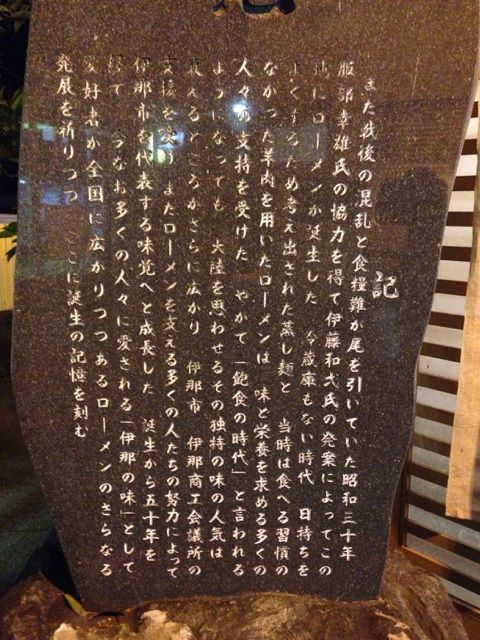 記
まだ戦後の混乱と食糧難が尾を引いていた昭和三十年
服部幸雄氏の協力を得て伊藤和弌氏の発案によってこの
地にローメンが誕生した 冷蔵庫もない時代 日持ちを
よくするため考え出された蒸し麺と 当時は食べる習慣の
なかった羊肉を用いたローメンは 味と栄養を求める多くの
人々の支持を受けた やがて「飽食の時代」と言われる
ようになっても 大陸を思わせるその独特の味の人気は
衰えるどころかさらに広がり 伊那市 伊那商工会議所の
支援を受け またローメンを支える多くの人たちの努力によって
伊那市を代表する味覚へと成長した 誕生から五十年を
経て いまなお多くの人々に愛される「伊那の味」として
愛好者が全国に広がりつつあるローメンのさらなる
発展を祈りつつ ここに誕生の記憶を刻む